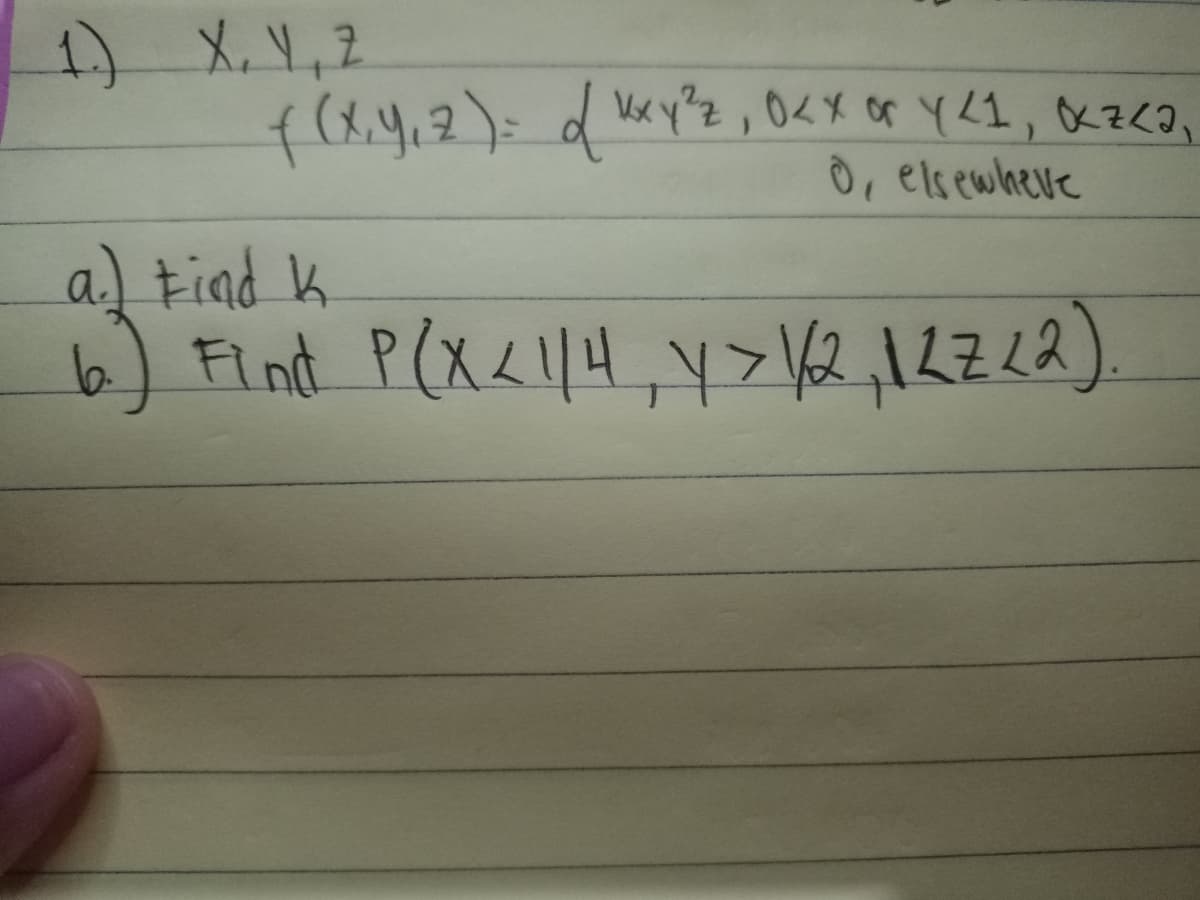 1.) X, Y, Z
f(x,y,z)= { kxy²z, 0<x or y<1, 0<z<2,
0, elsewhere
a.) Find k
b.) Find P(X<1/4, Y>1/2, 1<Z<2).